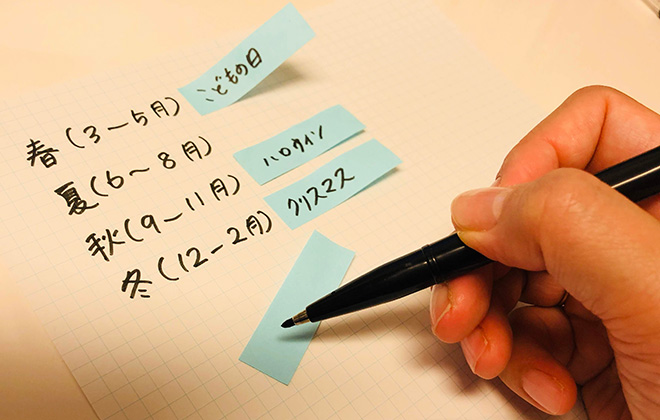 春(3〜5月) こどもの日
夏(6〜8月)
秋(9〜11月) ハロウィン
冬(12〜2月) クリスマス